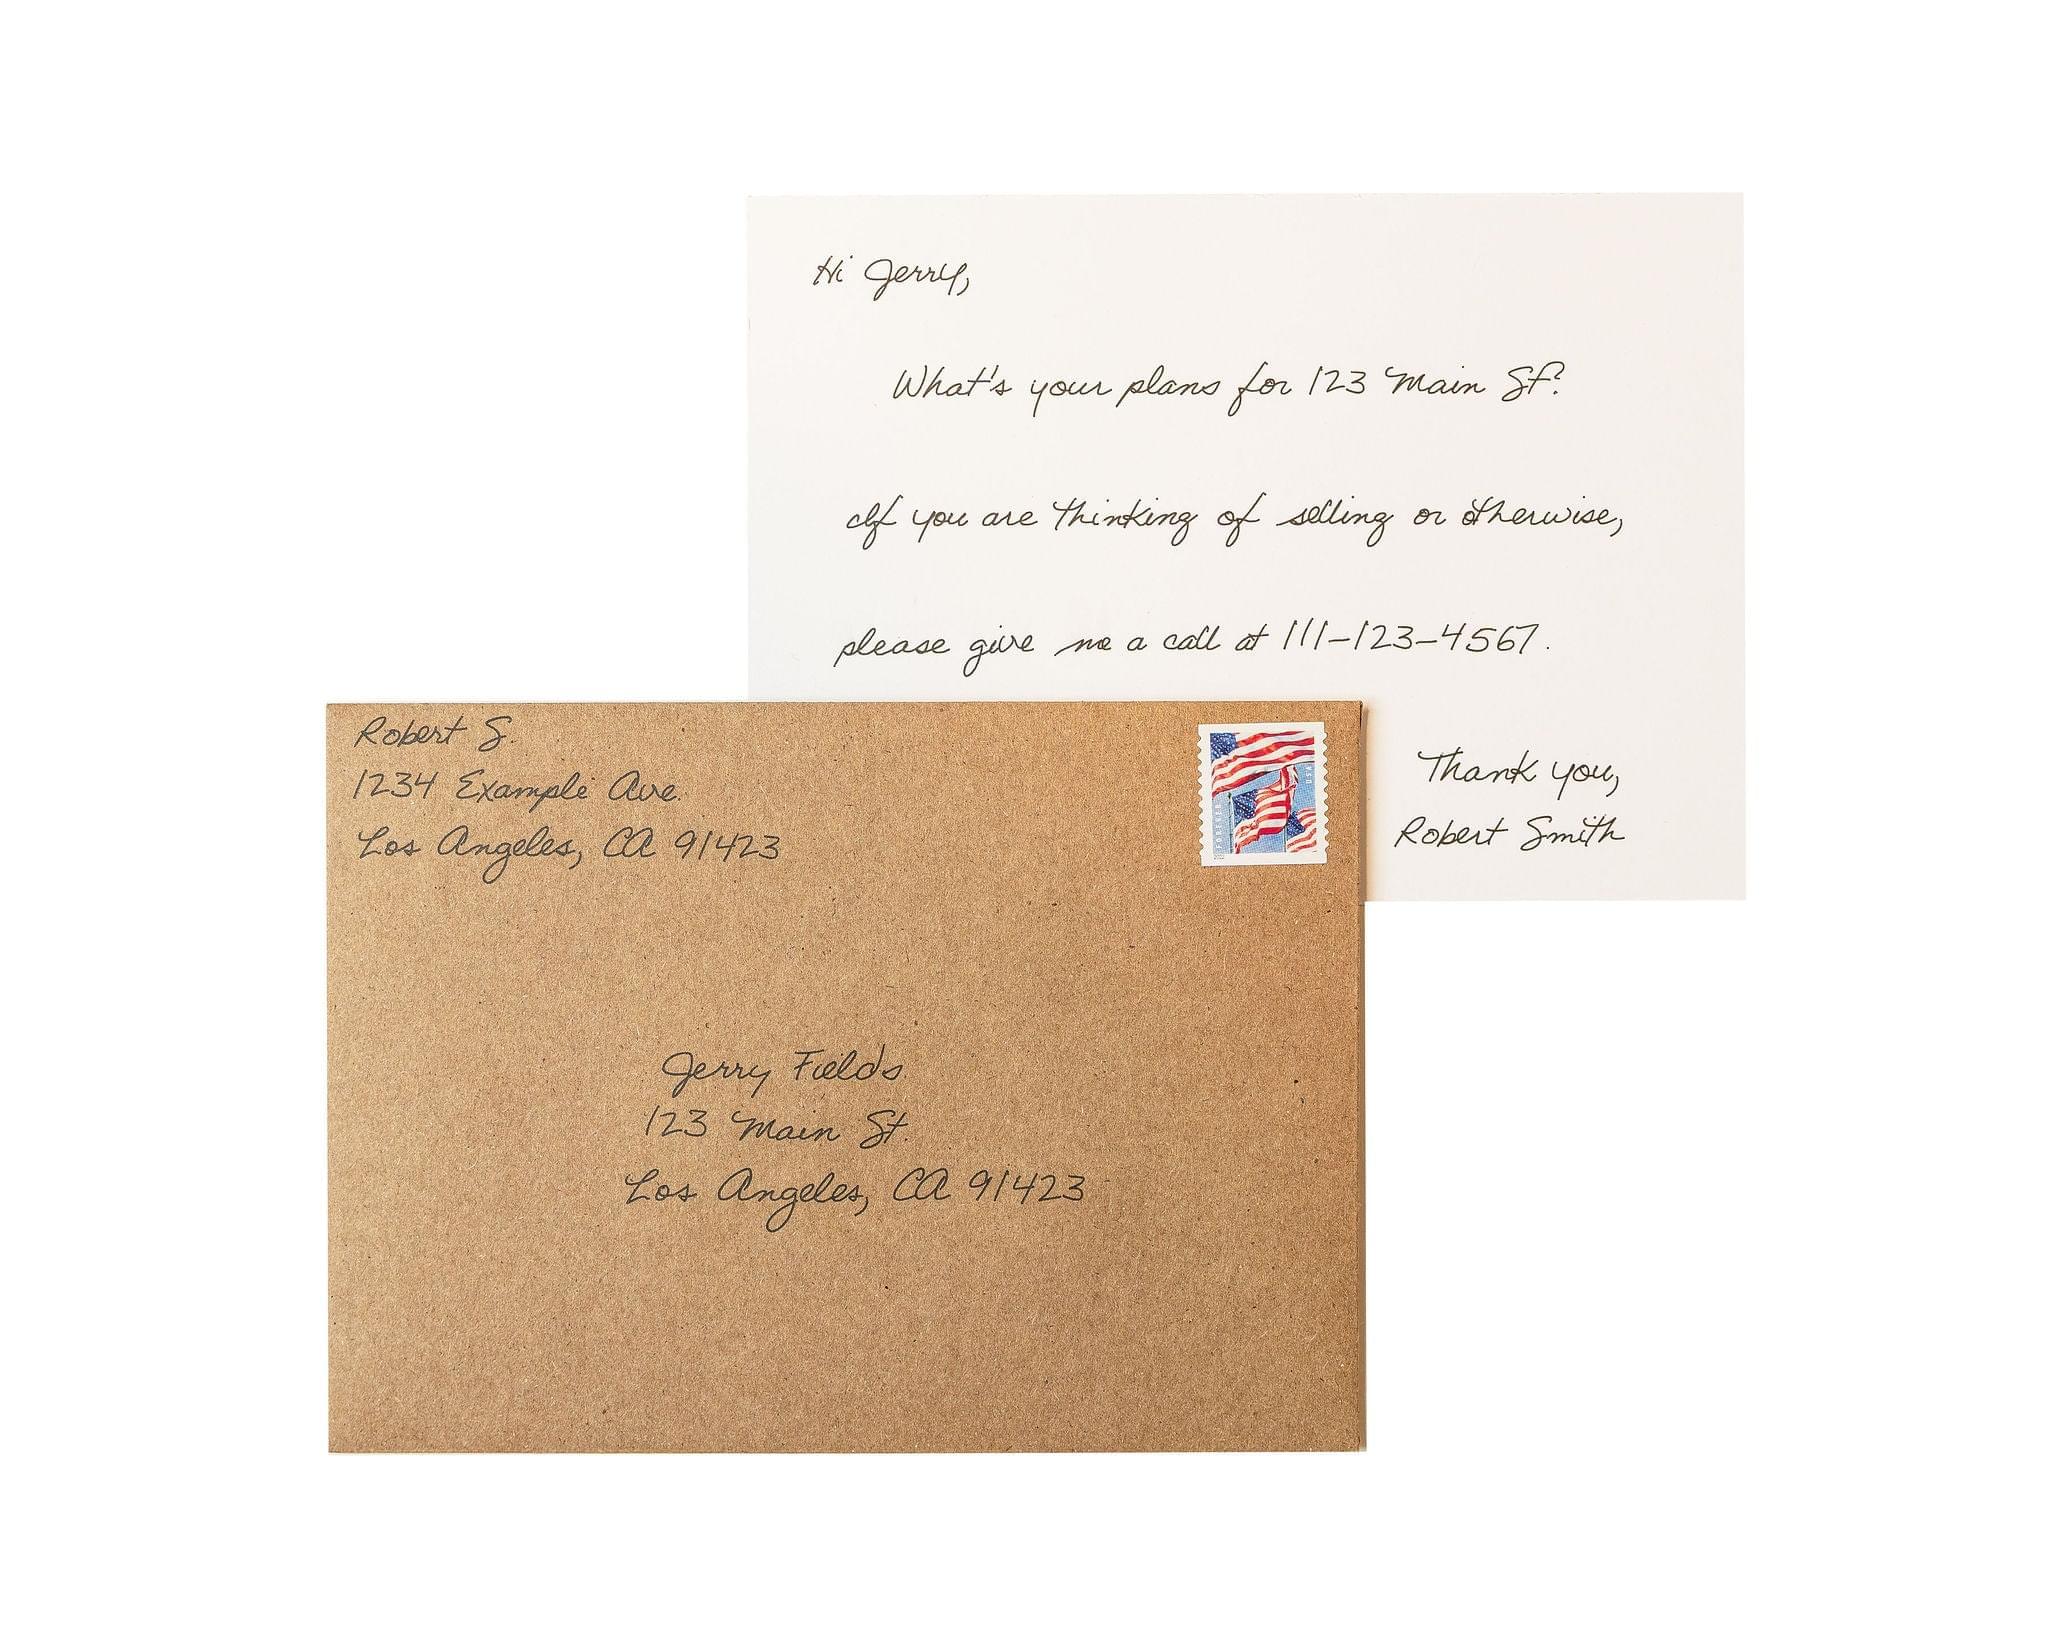 Hi Jerry,
What's your plans for 123 Main St?
If you are thinking of selling or otherwise,
please give me a call at 111-123-4567.
Thank you,
Robert Smith
Robert S.
1234 Example Ave.
Los Angeles, CA 91423
FOREVER
USA
Jerry Fields
123 Main St.
Los Angeles, CA 91423